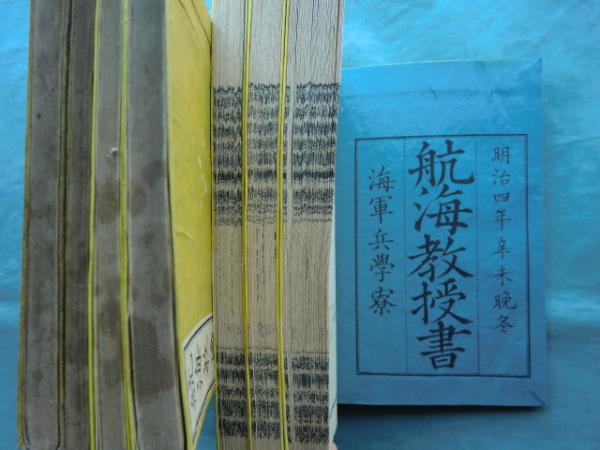 明治四年辛未晩冬
航海教授書
海軍兵學寮